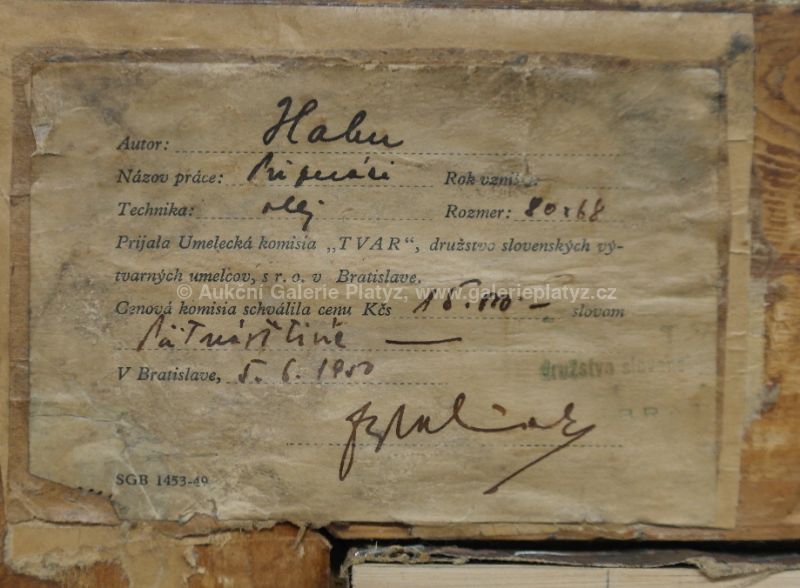 Autor:
Názov práce: Rok vzniku:
Technika: olej Rozmer: 80x68
Prijala Umelecká komisia „TVAR“, družstvo slovenských vý-
tvarných umelcov, s r. o. v Bratislave.
© Aukční Galerie Platýz, www.galerieplatyz.cz
Cenová komisia schválila cenu Kčs 15.000 – slovom
Pätnásťtisíc —
V Bratislave, 5. 6. 1950
družstvo slovens
SGB 1453-49